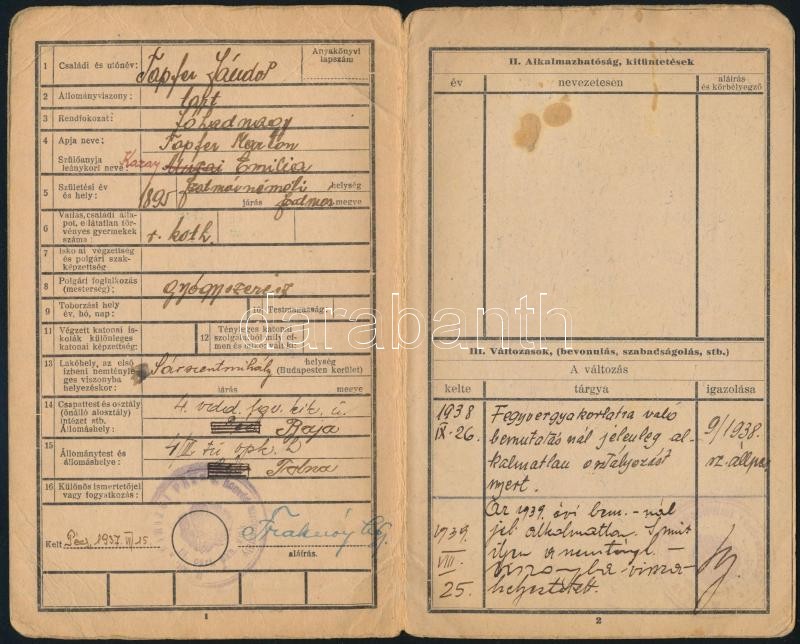 Anyakönyvi
lapszám
1 Családi és utónév: Tapfer Sándor
2 Állományviszony: tart
3 Rendfokozat: főhadnagy
4 Apja neve: Tapfer Márton
Szülőanyja
leánykori neve: Kazay Emilia
5 Születési év
és hely: 1895 Szatmárnémeti helység
járás Szatmár megye
6 Vallás, családi álla-
pot, ellátatlan tör-
vényes gyermekek
száma: r. kath.
7 Iskolai végzettség
és polgári szak-
képzettség
8 Polgári foglalkozás
(mesterség): gyógyszerész
9 Toborzási hely
év, hó, nap:
10 Testmagasság:
11 Végzett katonai is-
kolák különleges
katonai képzettség:
12 Tényleges katonai
szolgálatból mily cí-
men és mikor vált ki:
13 Lakóhely, az első
ízbeni nemtényle-
ges viszonyba
helyezéskor: Sárszentmihály helység
(Budapesten kerület)
járás megye
14 Csapattest és osztály
(önálló alosztály)
intézet stb.
Állomáshely: Baja
15 Állománytest és
állomáshelye: Tolna
16 Különös ismertetőjel
vagy fogyatkozás:
Kelt Pécs, 1937. VI/15.
aláírás.
1
II. Alkalmazhatóság, kitüntetések
év nevezetesen aláírás
és körbélyegző
III. Változások, (bevonulás, szabadságolás, stb.)
A változás
kelte tárgya igazolása
1938
IX-26.
Fegyvergyakorlatra való
bemutatásnál jelenleg al-
kalmatlan osztályozást
nyert.
9/1938.
sz. állpar
1939.
VIII.
25.
Az 1939. évi bem.-nál
jel. alkalmatlan. S mint
ilyen a nemtényl.
viszonyba vissza-
helyeztetett.
2
darabanth